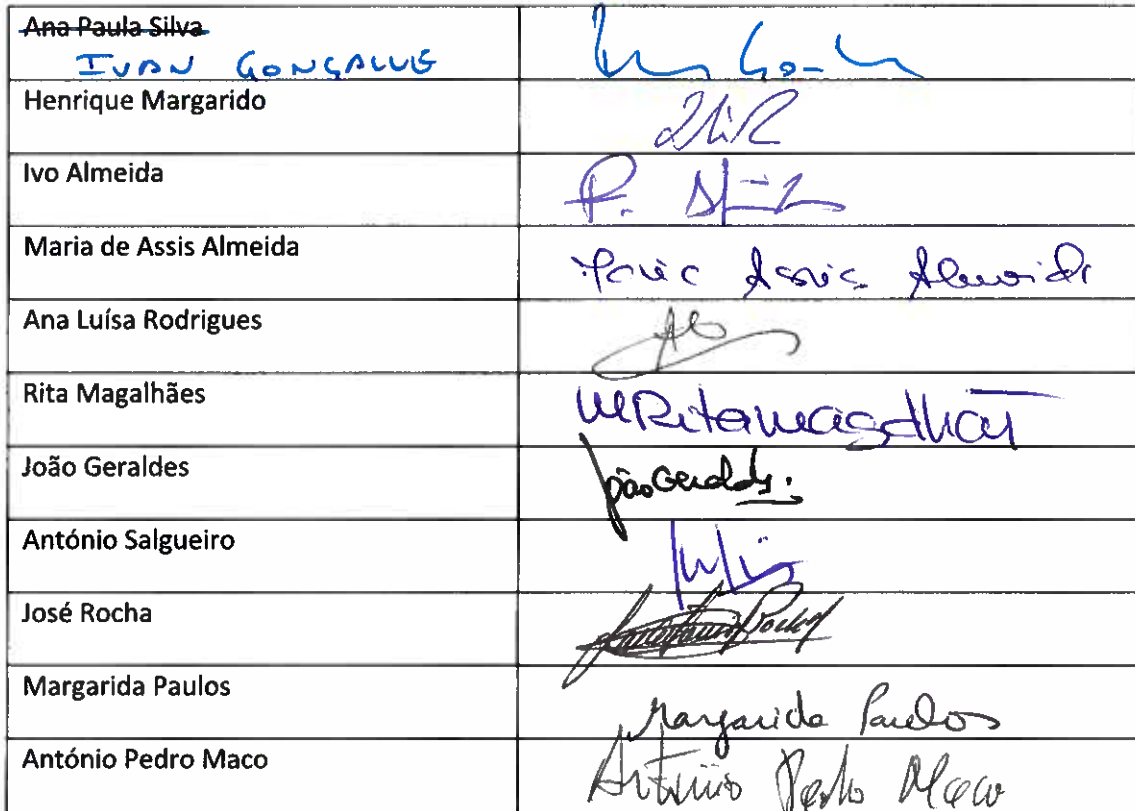 Ana Paula Silva
IVAN GONÇALVE
Henrique Margarido
Ivo Almeida
Maria de Assis Almeida Maria Assis Almeida
Ana Luísa Rodrigues
Rita Magalhães MRitaMagalhães
João Geraldes João Geraldes.
António Salgueiro
José Rocha
Margarida Paulos Margarida Paulos
António Pedro Maco António Pedro Maco